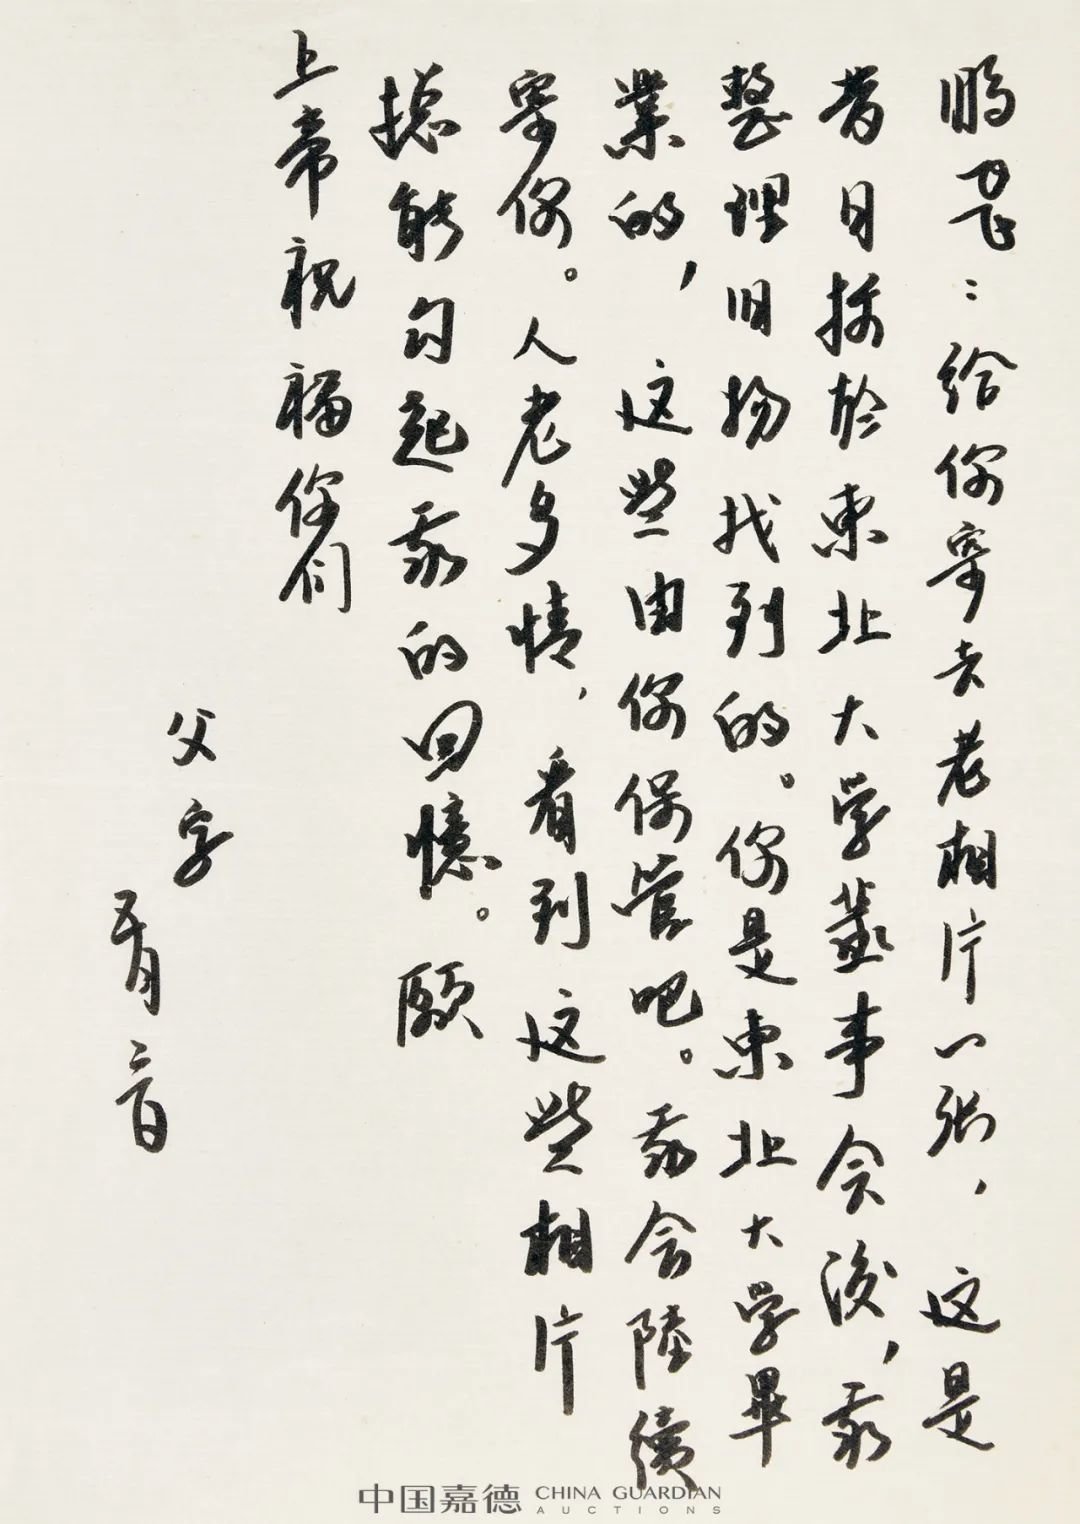 鹏飞：给你寄去老相片一张，这是
昔日摄於東北大学董事会後，我
整理旧物找到的。你是東北大学畢
業的，这些由你保管吧。我会陸續
寄你。人老多情，看到这些相片
揔能勾起我的回憶。願
上帝祝福你们
父字
五月二日
中国嘉德 CHINA GUARDIAN
AUCTIONS